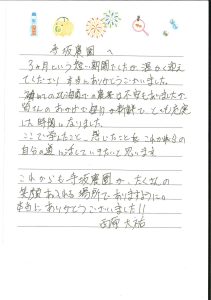 手坂農園 へ
3ヵ月という短い期間でしたが、温かく迎え
てくださり、本当にありがとうございました。
初めての北海道での農業は不安もありましたが
皆さんのおかげで毎日が新鮮で、とても充実
した時間になりました。
ここで学んだこと、感じたことを、これから
自分の道に活していきたいと思います。
これからも手坂農園が、たくさんの
笑顔あふれる場所でありますように。
本当にありがとうございました!!